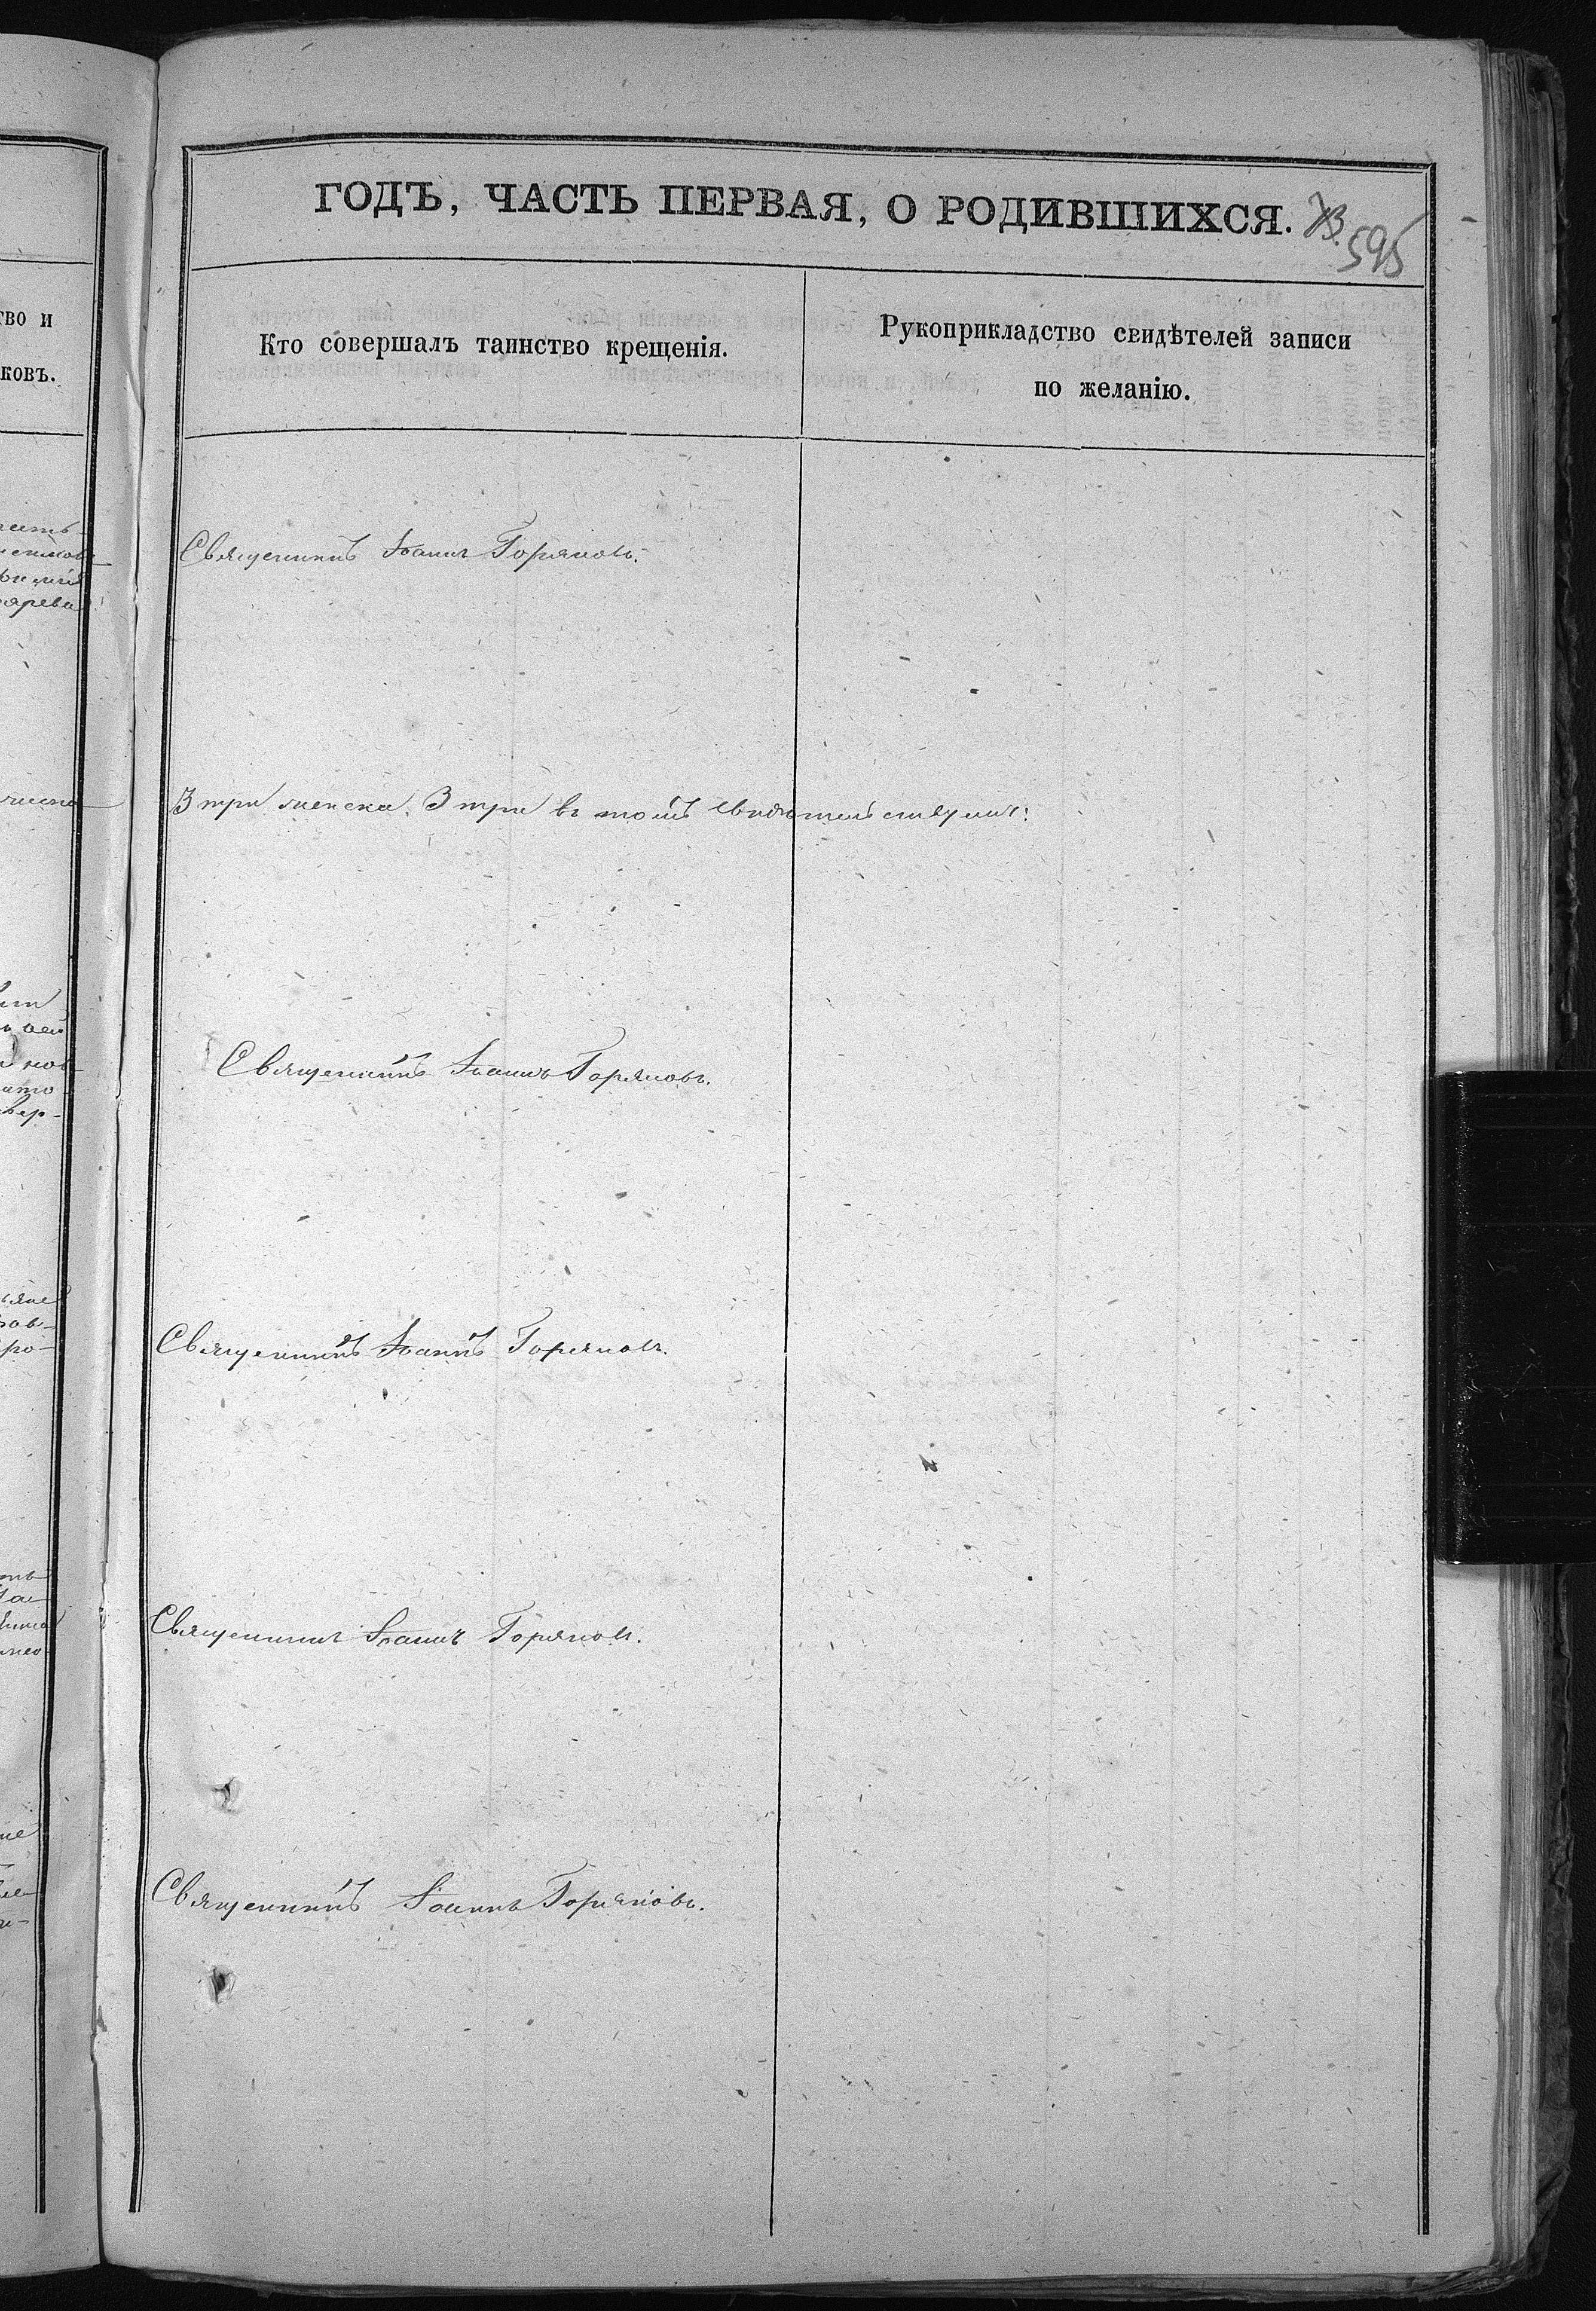 ГОДЪ, ЧАСТЬ ПЕРВАЯ, О РОДИВШИХСЯ.
595
тво и
ковъ.
Кто совершалъ таинство крещенія.
Рукоприкладство свидѣтелей записи
по желанію.
Священикъ Іоаннъ Горяновъ.
3 три женска. 3 три въ томъ свидѣтельствуютъ:
Священикъ Іоаннъ Горяновъ.
Священикъ Іоаннъ Горяновъ.
Священикъ Іоаннъ Горяновъ.
Священикъ Іоаннъ Горяновъ.